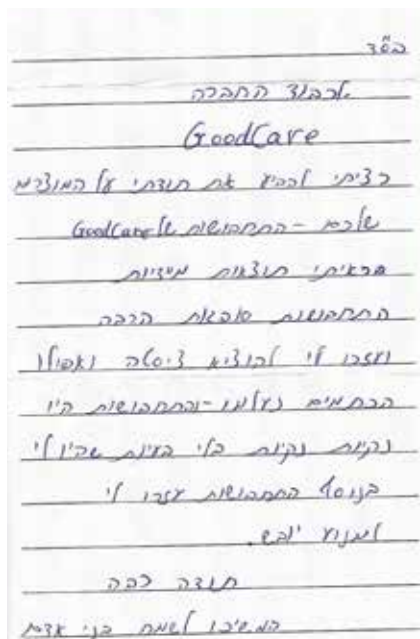 בס"ד
לכבוד החברה
GoodCare
רציתי להביע את תודתי על המוצרים
שלכם - התחבושות של GoodCare
שראיתי תוצאות מיידיות
התחבושות סופגות הרבה
ועזרו לי להוציא ציסטה ואפילו
הכתמים נעלמו - והתחבושות היו
נקיות נקיות בלי בעיות שהיו לי
בנוסף התחבושות עזרו לי
למנוע יובש.
תודה רבה
המשיכו לשמח בני אדם